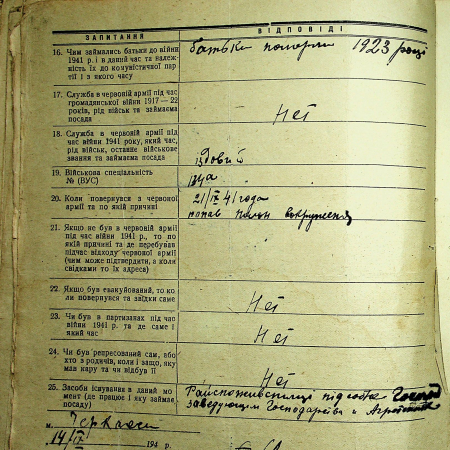 ЗАПИТАННЯ
ВІДПОВІДІ
16. Чим займались батьки до війни
1941 р. і в даний час та належ-
ність їх до комуністичної пар-
тії і з якого часу
батьки померли 1923 році
17. Служба в червоній армії під час
громадянської війни 1917—22
років, рід військ та займаєма
посада
Нет
18. Служба в червоній армії під
час війни 1941 року, який час,
рід військ, останнє військове
звання та займаєма посада
19. Військова спеціальність
№ (ВУС)
134а
20. Коли повернувся з червоної
армії та по якій причині
21/IX 41 года
попав окружения
21. Якщо не був в червоній армії
під час війни 1941 р., то по
якій причині та де перебував
під час відходу червоної армії
(чим може підтвердити, а коли
свідками то їх адреса)
22. Якщо був евакуйований, то ко
ли повернувся та звідки саме
Нет
23. Чи був в партизанах під час
війни 1941 р. та де саме і
який час
Нет
24. Чи був репресований сам, або
хто з родичів, коли і защо, яку
мав кару та чи відбув її
Нет
25. Засоби існування в даний мо
мент (де працює і яку займає
посаду)
Райспоживспілці
заведующим Господарства и
м. Черкассы
14/IX 194 р.